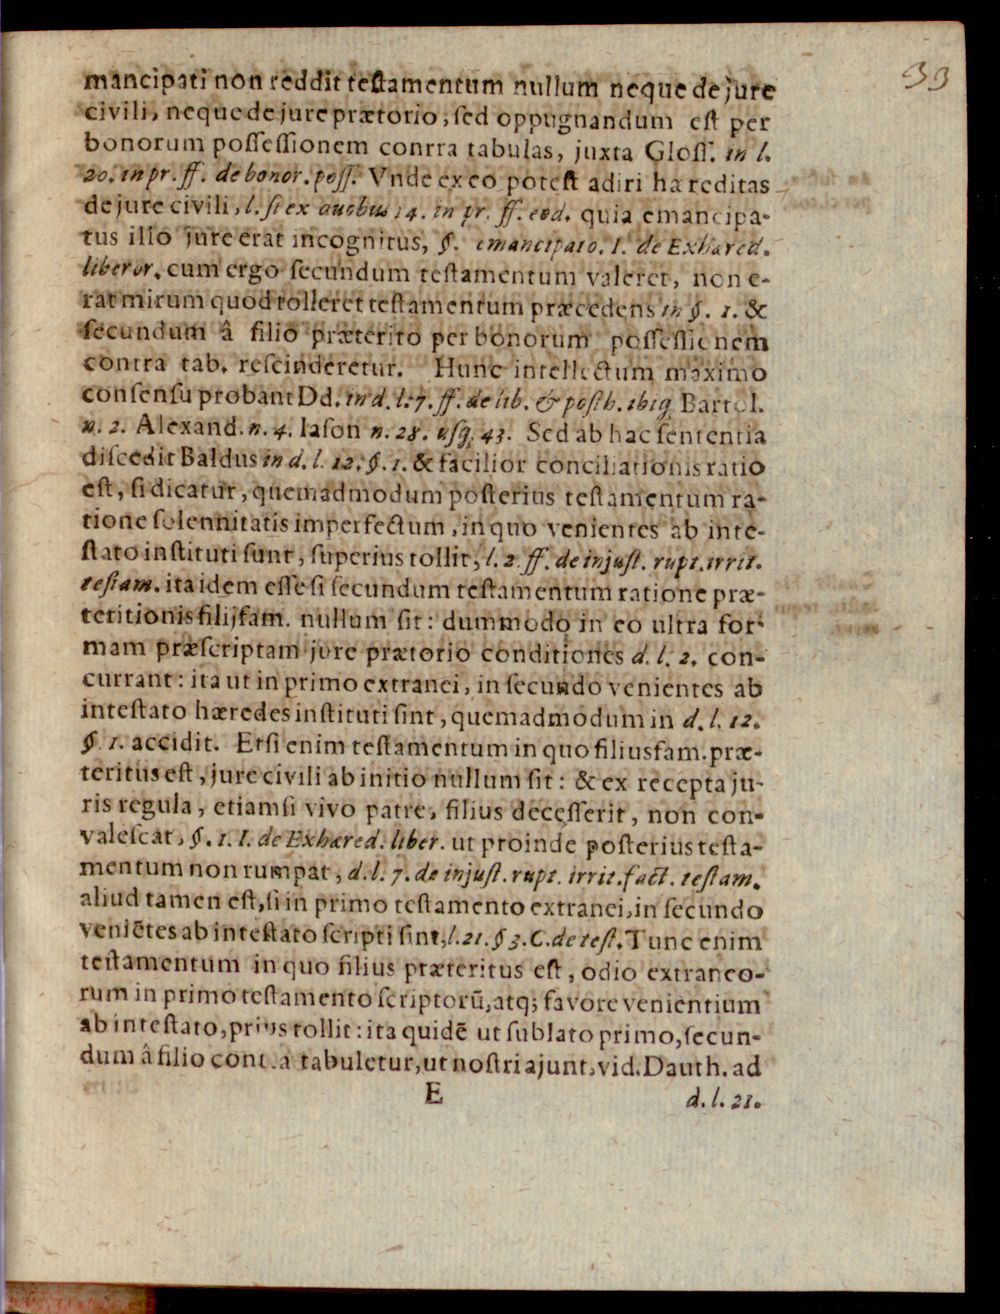 33
mancipati non reddit teſtamentum nullum neque de jure
civili, neque de jure prætorio, ſed oppugnandum eſt per
bonorum poſſeſſionem contra tabulas, juxta Gloſſ. in l.
20. in pr. ff. de bonor. poſſ. Vnde ex eo poteſt adiri hæreditas
de jure civili, l. ſi ex duobus 14. in pr. ff. eod. quia emancipa-
tus illo jure erat incognitus, §. emancipato. I. de Exhæred.
liberor. cum ergo ſecundum teſtamentum valeret, non e-
rat mirum quod tolleret teſtamentum præcedens in §. 1. &
ſecundum â filio præterito per bonorum poſſeſſionem
contra tab. reſcinderetur. Hunc intellectum maximo
conſenſu probant Dd. in d. l. 7. ff. de lib. & poſth. ibiq; Bartol.
n. 2. Alexand. n. 4. Iaſon n. 28. uſq; 43. Sed ab hac ſententia
diſcedit Baldus in d. l. 12. §. 1. & facilior conciliationis ratio
eſt, ſi dicatur, quemadmodum poſterius teſtamentum ra-
tione ſolennitatis imperfectum, in quo venientes ab inte-
ſtato inſtituti ſunt, ſuperius tollit, l. 2. ff. de injuſt. rupt. irrit.
teſtam. ita idem eſſe ſi ſecundum teſtamentum ratione præ-
teritionis filijfam. nullum ſit: dummodo in eo ultra for-
mam præſcriptam jure prætorio conditiones d. l. 2. con-
currant: ita ut in primo extranei, in ſecundo venientes ab
inteſtato hæredes inſtituti ſint, quemadmodum in d. l. 12.
§. 1. accidit. Etſi enim teſtamentum in quo filiusfam. præ-
teritus eſt, jure civili ab initio nullum ſit: & ex recepta ju-
ris regula, etiamſi vivo patre, filius deceſſerit, non con-
valeſcat, §. 1. I. de Exhæred. liber. ut proinde poſterius teſta-
mentum non rumpat, d. l. 7. de injuſt. rupt. irrit. fact. teſtam.
aliud tamen eſt, ſi in primo teſtamento extranei, in ſecundo
veniẽtes ab inteſtato ſcripti ſint, l. 21. § 3. C. de teſt. Tunc enim
teſtamentum in quo filius præteritus eſt, odio extraneo-
rum in primo teſtamento ſcriptorũ, atq; favore venientium
ab inteſtato, prius tollit: ita quidẽ ut ſublato primo, ſecun-
dum â filio contra tabuletur, ut noſtri ajunt, vid. Dauth. ad
E d. l. 21.